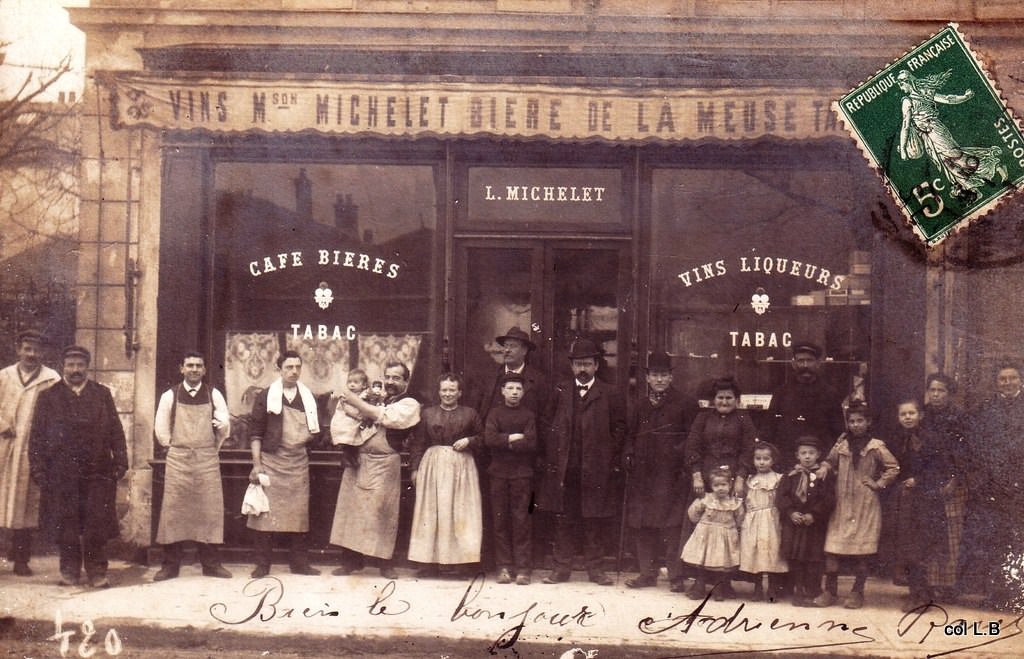 VINS Mson MICHELET BIERE DE LA MEUSE TA
REPUBLIQUE FRANÇAISE
POSTES
5c
L. MICHELET
CAFE BIERES
TABAC
VINS LIQUEURS
TABAC
Bien le bonjour Adrienne
120
col L.B